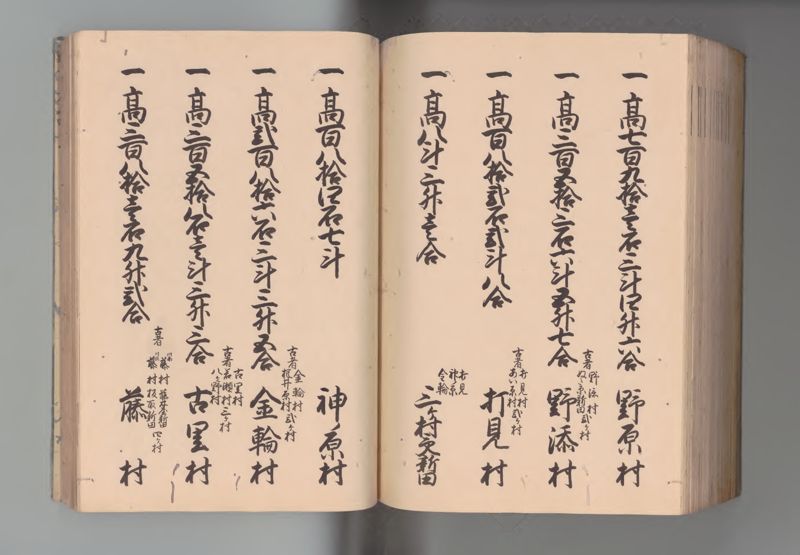 一 高七百九拾壱石三斗四升六合 野原村
一 高三百五拾三石六斗五升七合
古者 野添村
弐ヶ村
野添村
一 高百八拾弐石弐斗八合
古者 打見村
あい原村 弐ヶ村
打見村
一 高八斗三升壱合
打見
神原
金輪
三ヶ村之新田
一 高百八拾四石七斗 神原村
一 高弐百八拾六石三斗三升五合
古者 金輪村
桜井原村 弐ヶ村
金輪村
一 高三百五拾八石壱斗三升三合
古者 古里村
岩瀬村 三ヶ村
八ヶ野村
古里村
一 高三百八拾壱石九升弐合
古者 藤村
藤村 新田 四ヶ村
藤村